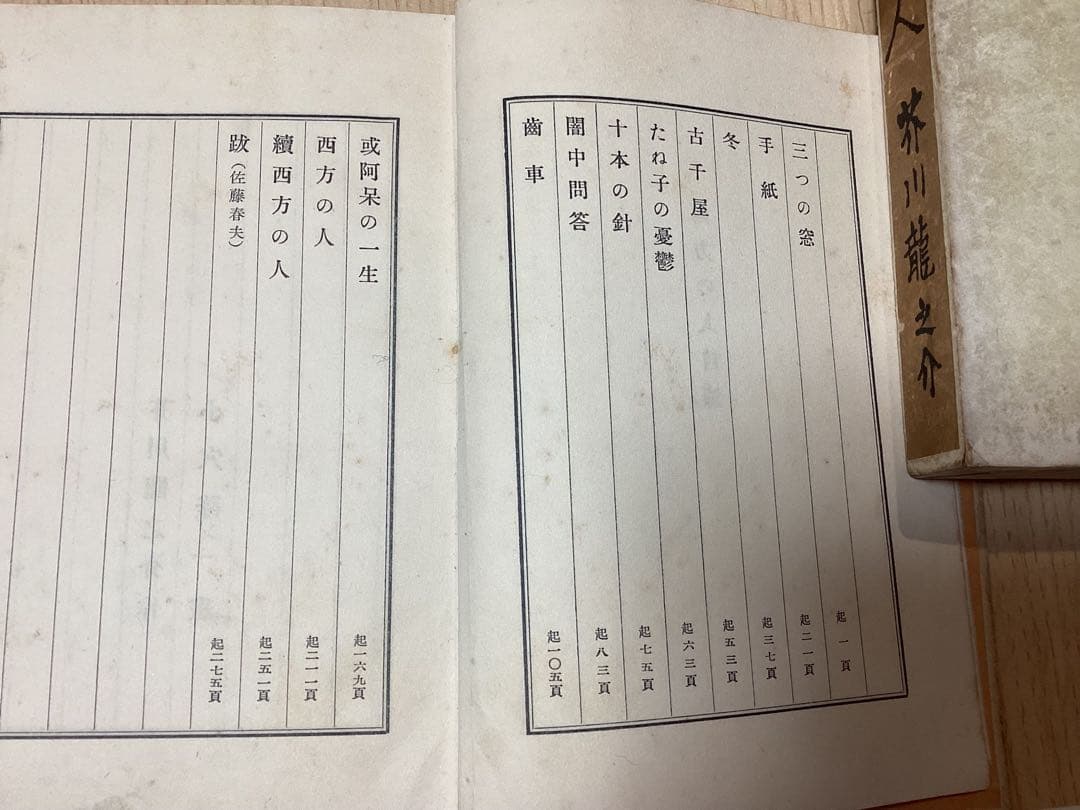 三つの窓 起一頁
手紙 起二一頁
冬 起三七頁
古千屋 起五三頁
たね子の憂鬱 起六三頁
十本の針 起七五頁
闇中問答 起八三頁
齒車 起一〇五頁
或阿呆の一生 起一六九頁
西方の人 起二一一頁
續西方の人 起二五一頁
跋（佐藤春夫） 起二七五頁
人 芥川龍之介